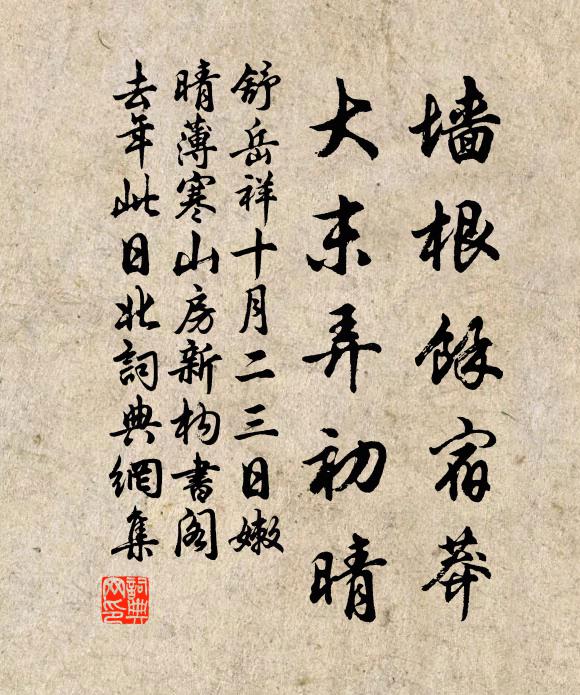 墙根餘宿莽
大末弄初晴
舒岳祥十月二三日嫩
晴薄寒山房新构書阁
去年此日北詞典網集
詞典